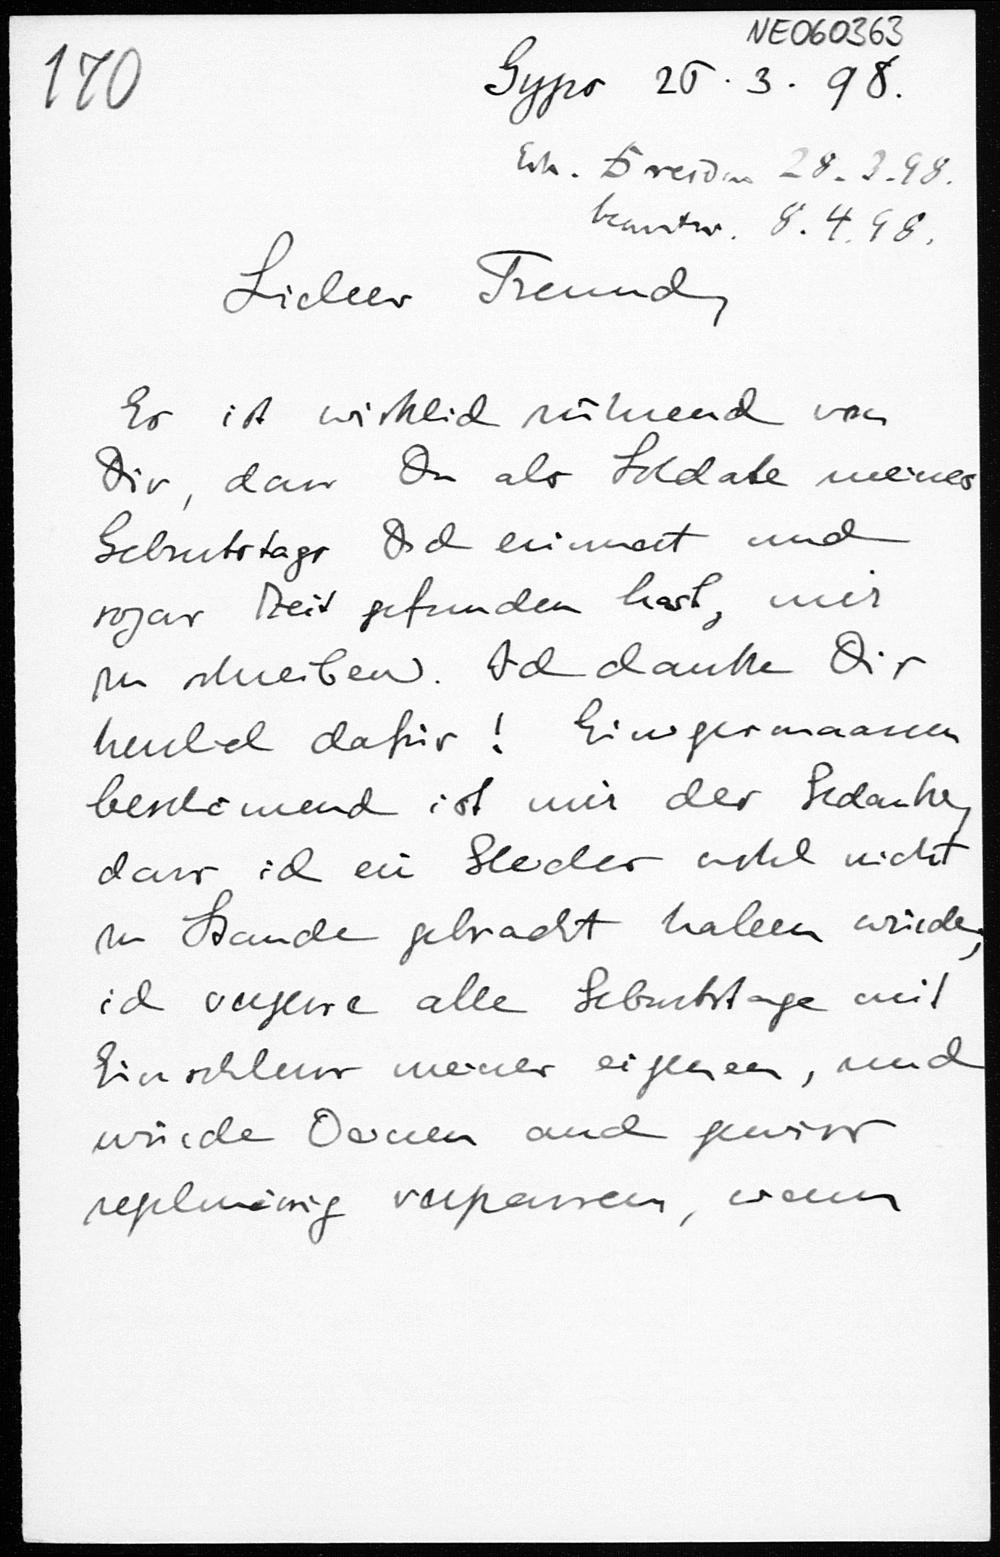 NE060363
170
Gyps 25.3.98.
Erh. Dresden 28.3.98.
beantw. 8.4.98.
Lieber Freund,
Es ist wirklich rührend von
Dir, dass Du als Soldate meines
Geburtstags Dich erinnert und
sogar Zeit gefunden hast, mir
zu schreiben. Ich danke Dir
herzlich dafür! Einigermaassen
beschämend ist mir der Gedanke,
dass ich ein Gleiches wohl nicht
zu Stande gebracht haben würde,
ich vergesse alle Geburtstage mit
Einschluss meines eigenen, und
würde Deinen auch gewiss
regelmässig verpassen, wenn